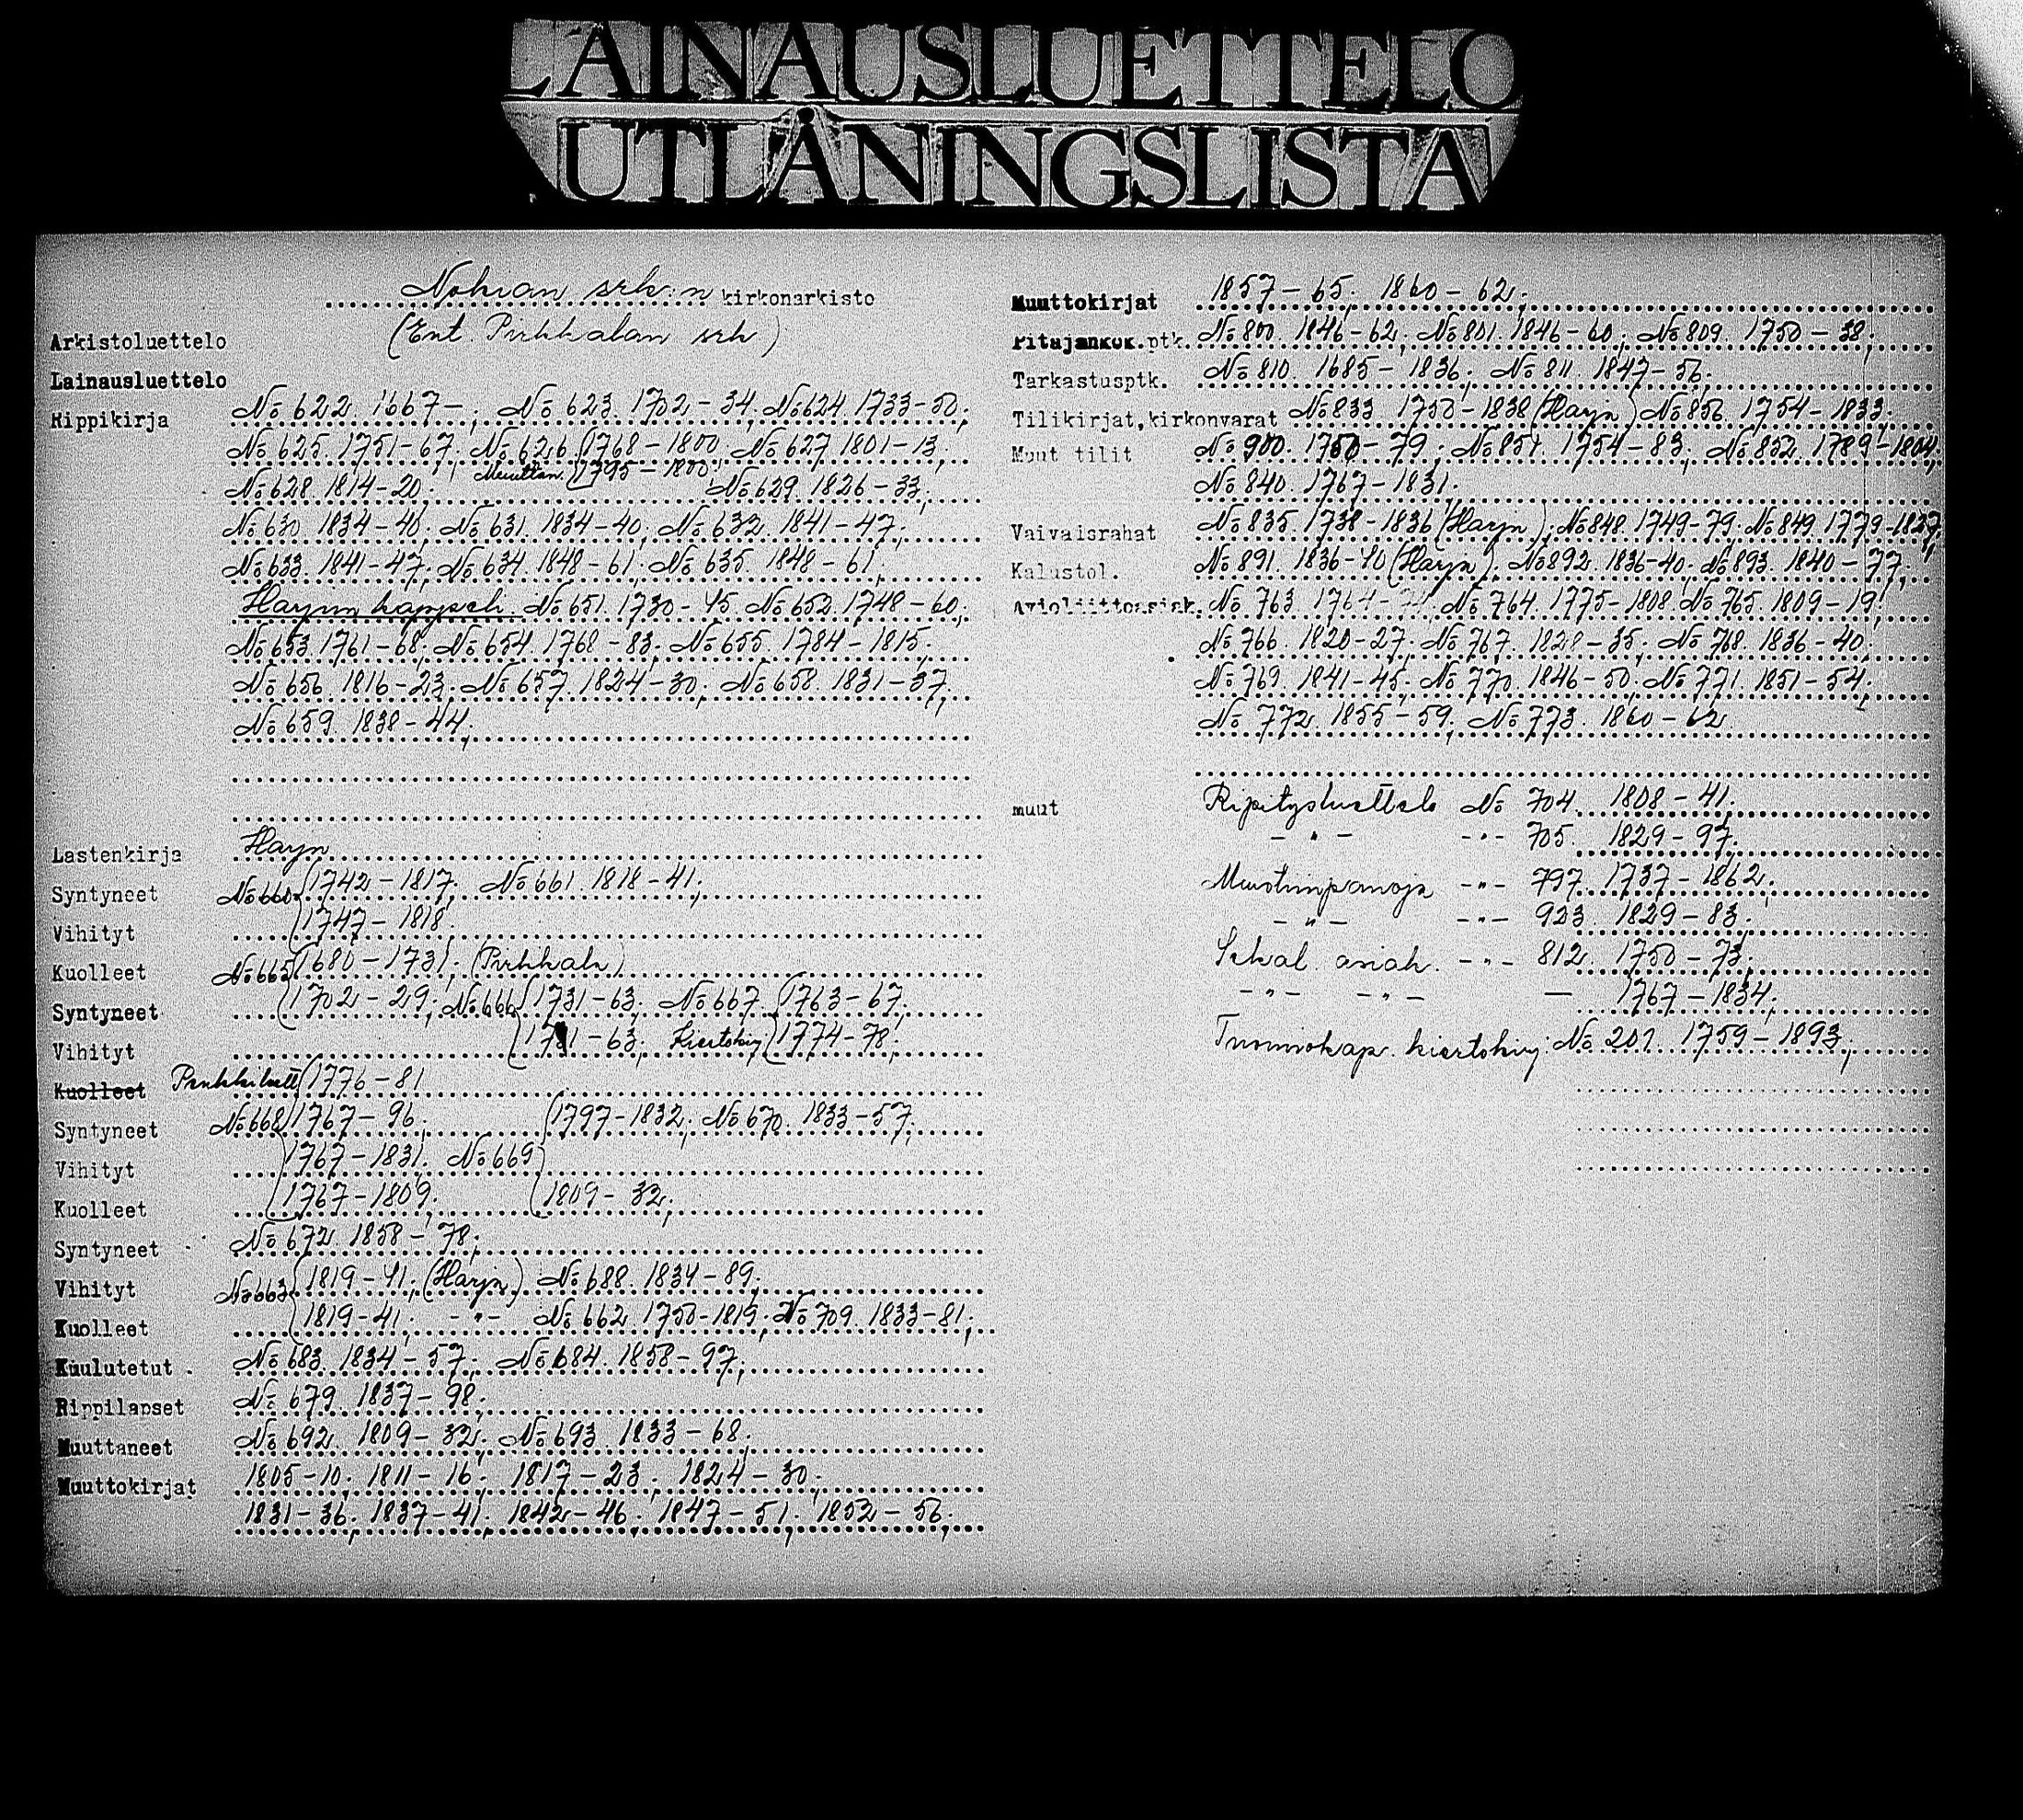 LAINAUSLUETTELO
UTLÅNINGSLISTA
Nokian srk:n kirkonarkisto
Arkistoluettelo (Ent. Pirkkalan srk)
Lainausluettelo
Rippikirja No 622. 1667-; No 623. 1702-34; No 624. 1733-50;
No 625. 1751-67; No 626. (1768-1800; No 627. 1801-13;
No 628. 1814-20; Muuttan. (1795-1800; No 629. 1826-33;
No 630. 1834-40; No 631. 1834-40; No 632. 1841-47;
No 633. 1841-47; No 634. 1848-61; No 635. 1848-61;
Harjun kappeli. No 651. 1730-45. No 652. 1748-60;
No 653. 1761-68; No 654. 1768-83; No 655. 1784-1815;
No 656. 1816-23; No 657. 1824-30; No 658. 1831-37;
No 659. 1838-44;
Lastenkirja Harju
Syntyneet No 660 (1742-1817; No 661. 1818-41;
Vihityt (1747-1818
Kuolleet No 665 (1680-1731; (Pirkkala)
Syntyneet (1702-29; No 666 (1731-63; No 667. (1763-67;
Vihityt (1731-63; Kiertokirj (1774-78;
Kuolleet (1776-81
Syntyneet No 668 (1767-96; (1797-1832; No 670. 1833-57;
Vihityt (1767-1831; No 669
Kuolleet (1767-1809; (1809-32;
Syntyneet No 672. 1858-78;
Vihityt No 663 (1819-41; (Harju) No 688. 1834-89;
Kuolleet (1819-41; -"- No 662. 1750-1819; No 709. 1833-81;
Kuulutetut No 683. 1834-57; No 684. 1858-97;
Rippilapset No 679. 1837-98;
Muuttaneet No 692. 1809-32; No 693. 1833-68;
Muuttokirjat 1805-10; 1811-16; 1817-23; 1824-30;
1831-36; 1837-41; 1842-46; 1847-51; 1852-56;
Muuttokirjat 1857-65; 1860-62;
Pitäjänkok.ptk. No 800. 1846-62; No 801. 1846-60; No 809. 1750-38;
Tarkastusptk. No 810. 1685-1836; No 811. 1847-56;
Tilikirjat, kirkonvarat No 833. 1750-1838 (Harju) No 856. 1754-1833;
Muut tilit No 900. 1750-79; No 851. 1754-83; No 852. 1789-1804;
No 840. 1767-1831;
Vaivaisrahat No 835. 1738-1836 (Harju); No 848. 1749-79. No 849. 1779-1837;
Kalustol. No 891. 1836-40 (Harju); No 892. 1836-40; No 893. 1840-77;
Avioliittoasiak. No 763. No 764. 1775-1808. No 765. 1809-19;
No 766. 1820-27; No 767. 1828-35; No 768. 1836-40;
No 769. 1841-45; No 770. 1846-50; No 771. 1851-54;
No 772. 1855-59; No 773. 1860-62
muut Ripitysluettelo No 704. 1808-41;
-"- -"- 705. 1829-97;
Muistiinpanoja -"- 797. 1737-1862;
-"- -"- 923. 1829-83;
Sekal. asiak. -"- 812. 1750-73;
-"- -"- — 1767-1834;
Tuomiokap. kiertokirj: No 201. 1759-1893;